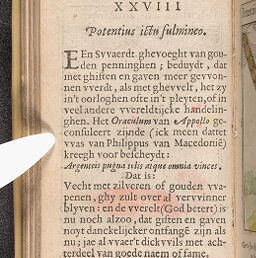 XXVIII
Potentius ictu fulmineo.
EEn Svvaerdt ghevoeght van gou-
den penninghen; beduydt, dat
met ghiften en gaven meer gevvon-
nen vverdt, als met ghevvelt, het zy
in't oorloghen ofte in't pleyten, of in
veel andere vvereldtlicke handelin-
ghen. Het Oraculum van Apollo ge-
consuleert zijnde (ick meen dattet
vvas van Philippus van Macedonië)
kreegh voor bescheydt:
Argenteis pugna telis atque omnia vinces.
Dat is:
Vecht met zilveren of gouden vva-
penen, ghy zult over al vervvinner
blyven: en de vverelt (God betert) is
nu noch alzoo, dat giften en gaven
noyt danckelijcker ontfangē zijn als
nu; jae al vvaer't dickvvils met ach-
terdeel van goede naem of fame.